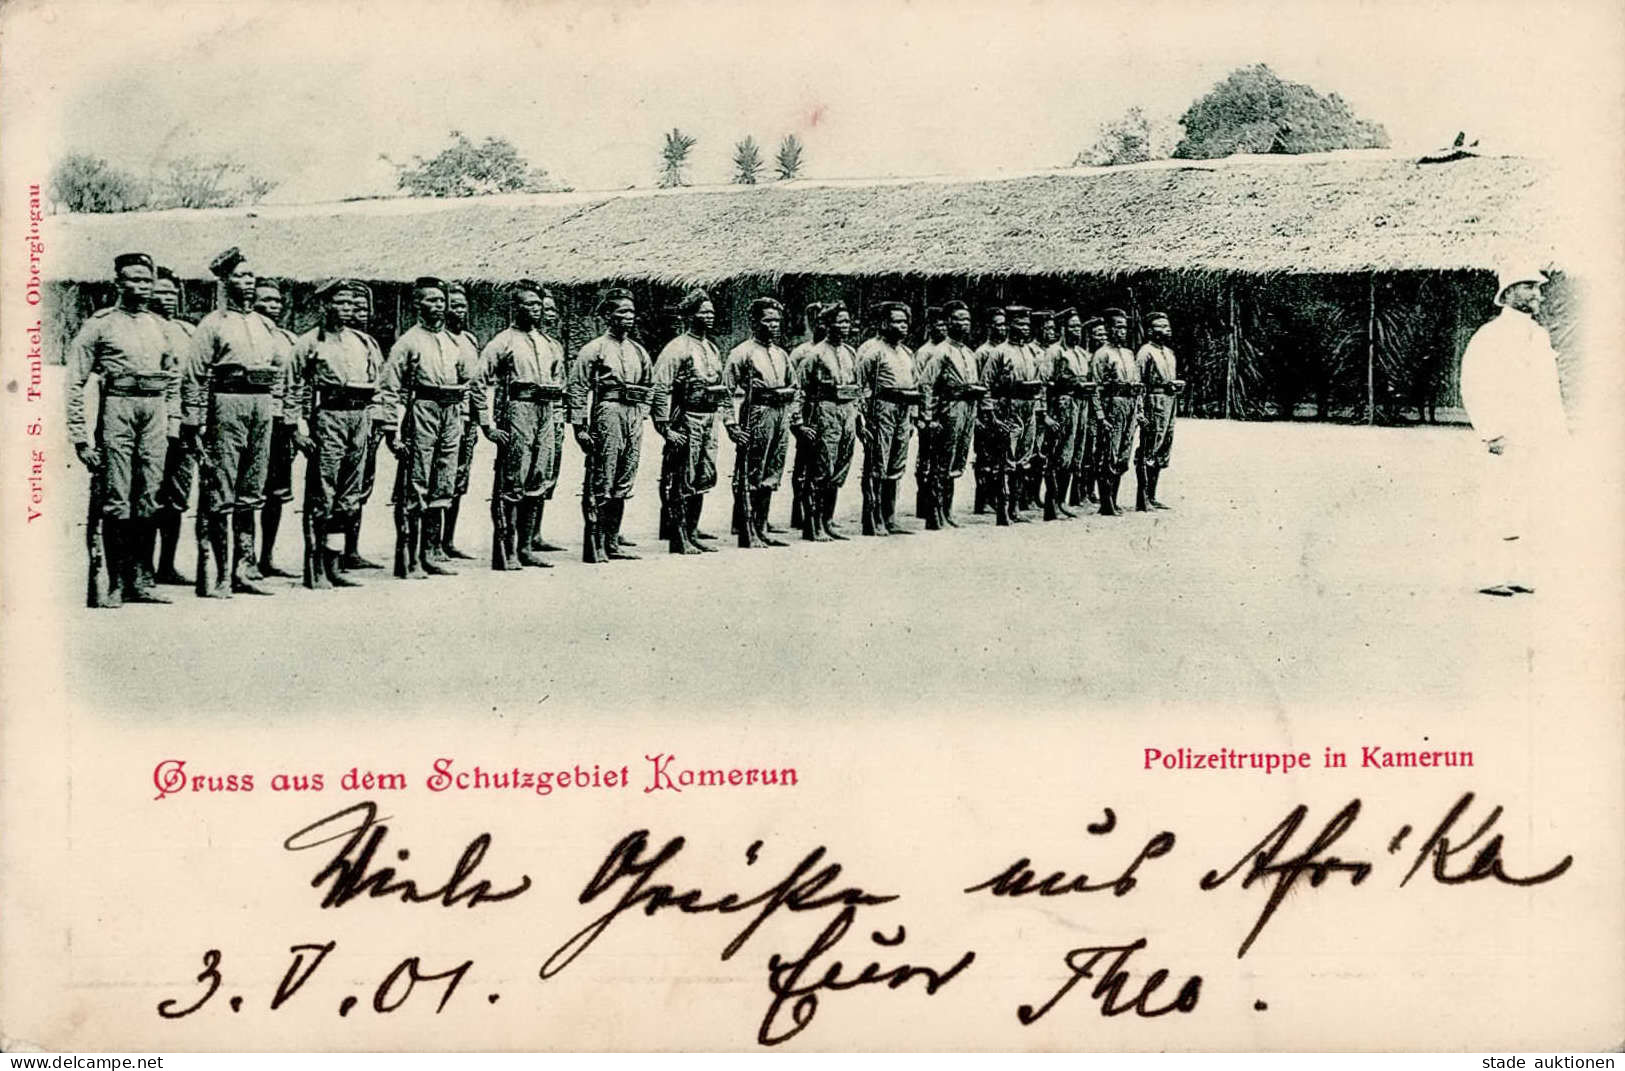 Verlag S. Tunkel, Oberglogau
Gruss aus dem Schutzgebiet Kamerun
Polizeitruppe in Kamerun
Viele Grüße aus Afrika
3.V.01. Euer Theo.
www.delcampe.net
stade auktionen